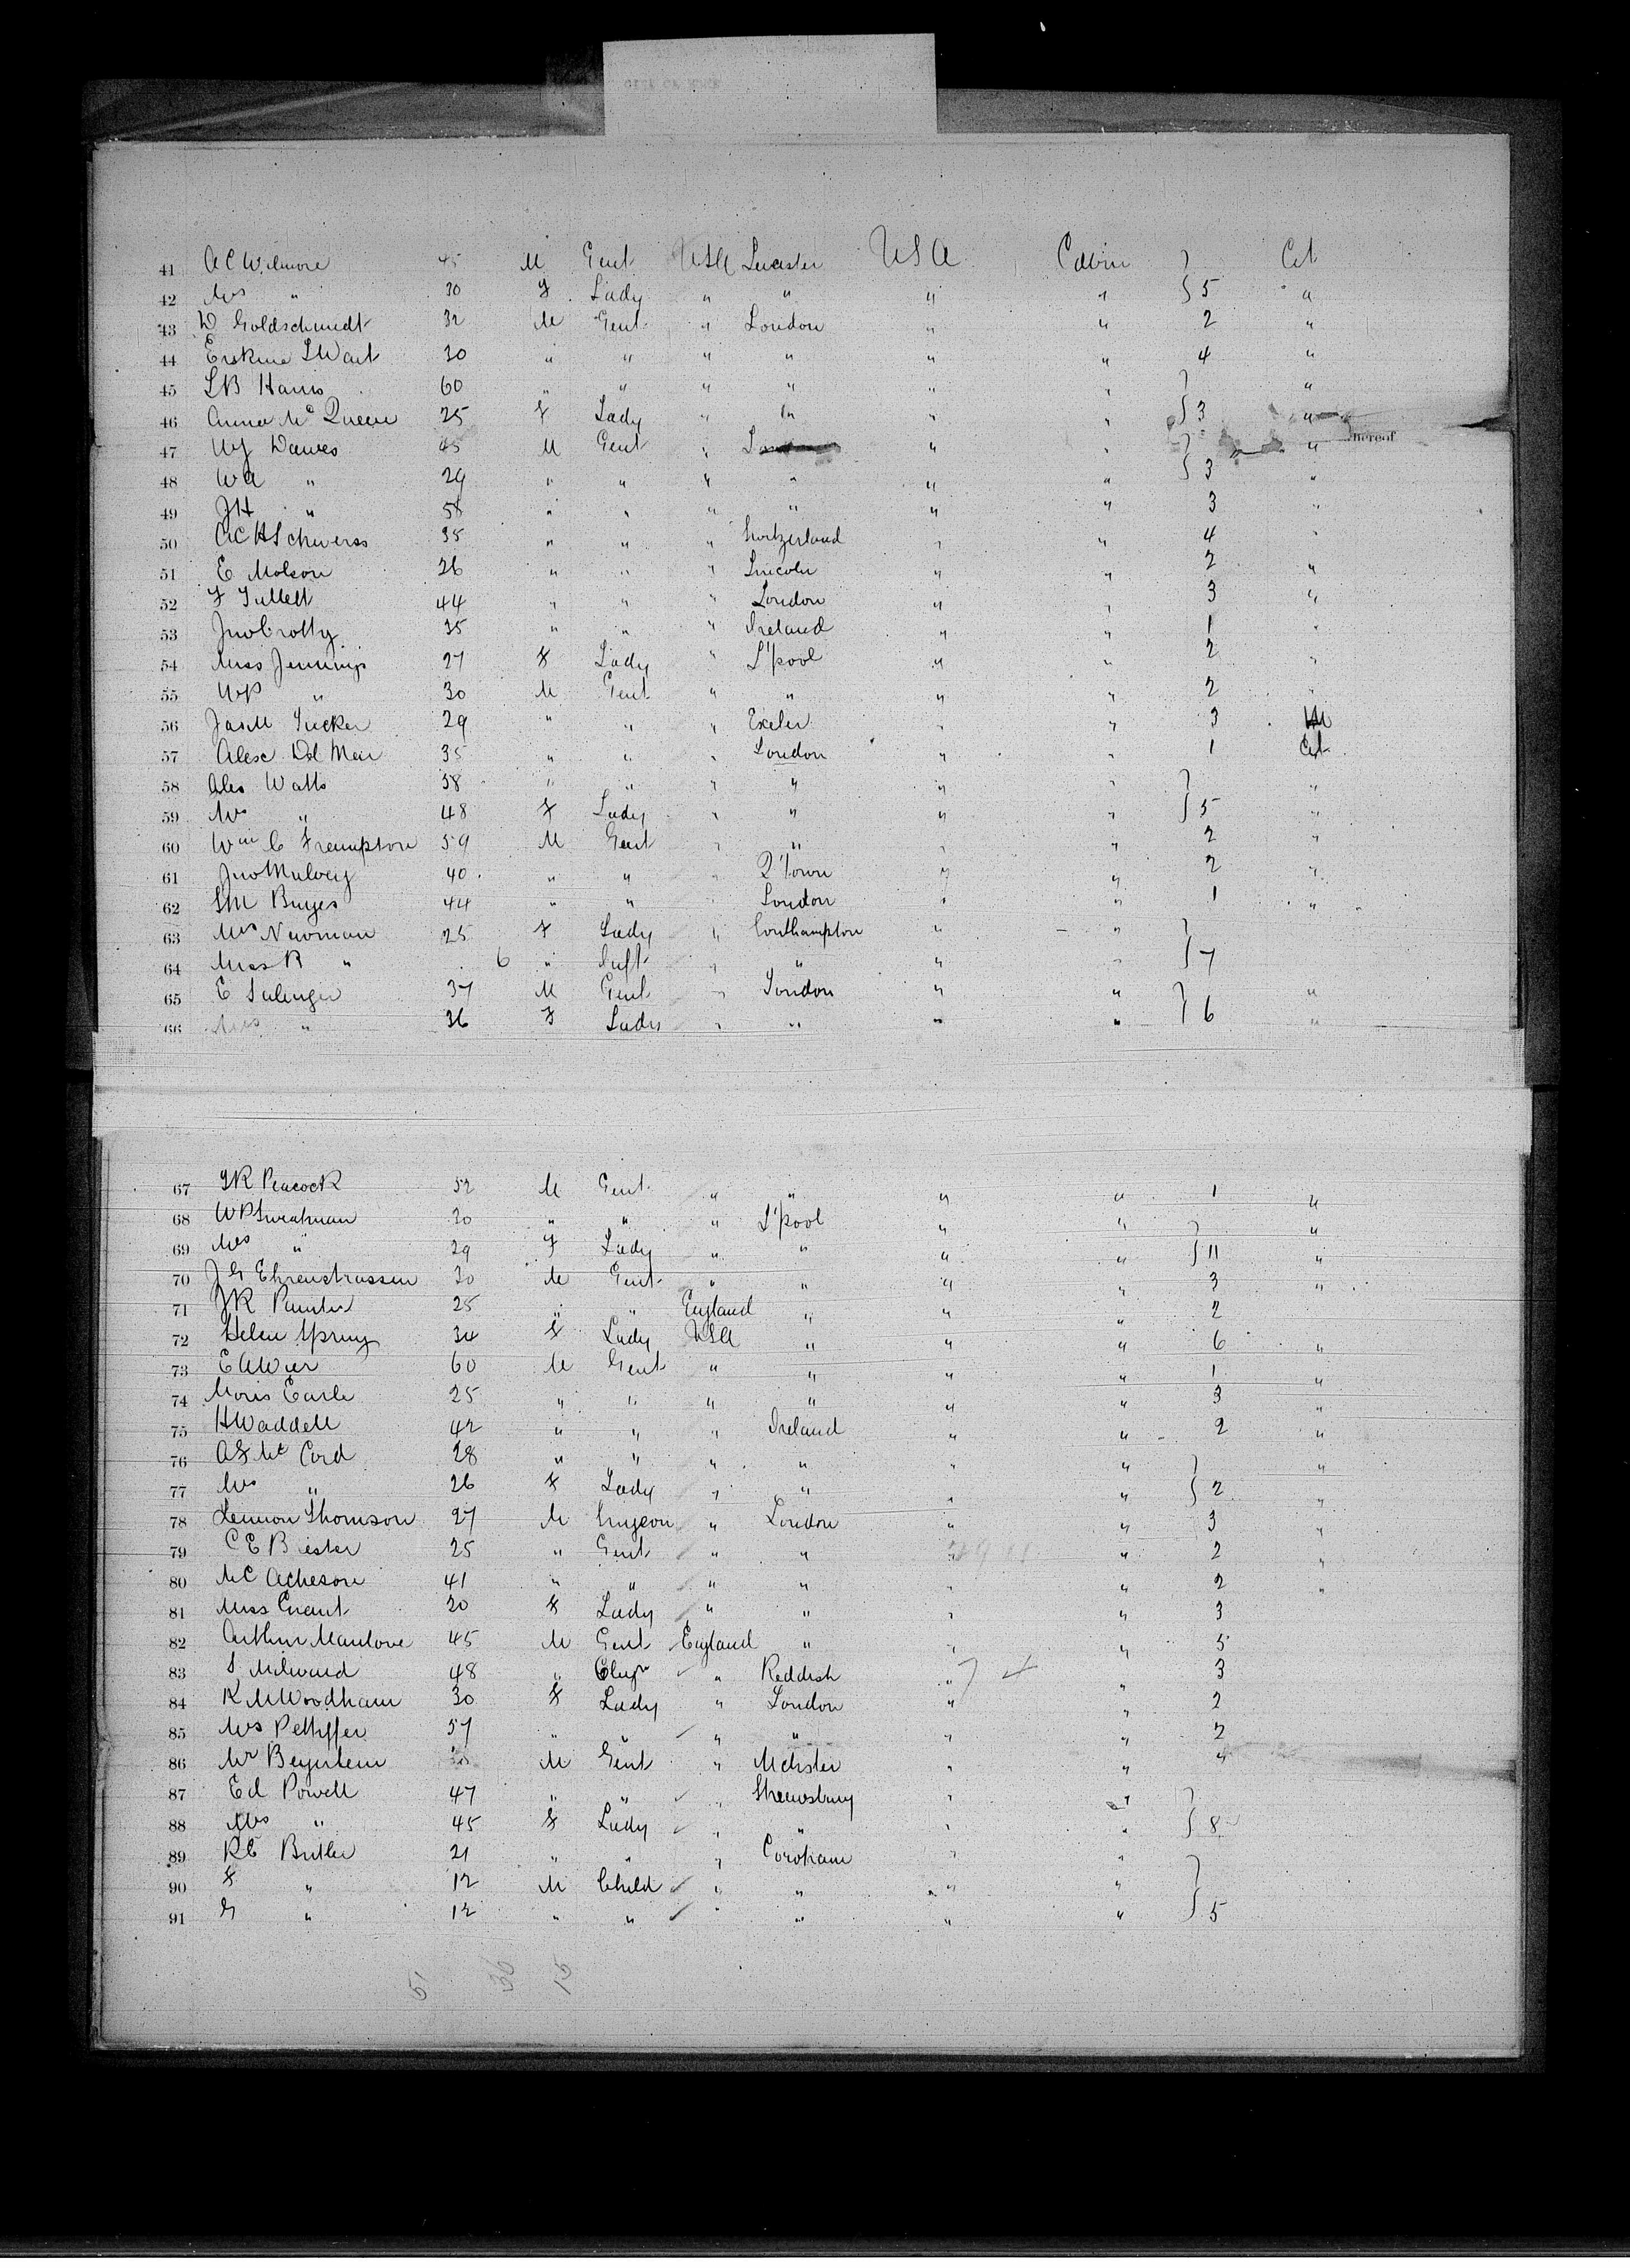 41 A C Wilmore 45 M Gent USA Leicester USA Cabin Cit
42 Mrs " 30 F Lady " " " " 5 "
43 D Goldschmidt 32 M Gent " London " " 2 "
44 Erskine 30 " " " " " " 4 "
45 L B Harris 60 " " " " " " "
46 Anna McQueen 25 F Lady " " " " 3 "
47 W J Dawes 45 M Gent " " " " thereof
48 W A " 29 " " " " " " 3 "
49 J H " 58 " " " " " " 3 "
50 A C H Schwerss 35 " " " Switzerland " " 4 "
51 E Molson 26 " " " Lincoln " " 2 "
52 F Tullett 44 " " " London " " 3 "
53 Jno Crotty 35 " " " Ireland " " 1 "
54 Miss Jennings 27 F Lady " L'pool " " 2 "
55 W P " 30 M Gent " " " " 2 "
56 Jas M Tucker 29 " " " Exeter " " 3
57 Alex Del Mar 35 " " " London " " 1 Cit
58 Alex Watts 58 " " " " " " "
59 Mrs " 48 F Lady " " " " 5 "
60 Wm C Frampton 59 M Gent " " " " 2 "
61 Jno Mulvey 40 " " " Q'town " " 2 "
62 S M Burges 44 " " " London " " 1 "
63 Mrs Newman 25 F Lady " Southampton " "
64 Miss R " 6 " Inft " " " " 7
65 E Salinger 37 M Gent " London " " "
66 Mrs " 36 F Lady " " " " 6 "
67 Peacock 52 M Gent " " " " 1 "
68 W P Sweatman 30 " " " L'pool " " "
69 Mrs " 29 F Lady " " " " 11 "
70 J G Ehrenstrassen 30 M Gent " " " " 3 "
71 J R Painter 25 " " England " " " 2
72 Helen Spring 34 F Lady USA " " " 6 "
73 E A Wier 60 M Gent " " " " 1 "
74 Moris Earle 25 " " " " " " 3 "
75 H Waddell 42 " " " Ireland " " 2 "
76 A F McCord 28 " " " " " " "
77 Mrs " 26 F Lady " " " " 2 "
78 Lennon Thomson 27 M Surgeon " London " " 3 "
79 C E Biester 25 " Gent " " " " 2 "
80 M C Acheson 41 " " " " " " 2 "
81 Miss Grant 20 F Lady " " " " 3
82 Arthur Manlove 45 M Gent England " " " 5
83 S Milward 48 " Clergn " Reddish " " 3
84 K M Woodham 30 F Lady " London " " 2
85 Mrs Pettiffer 57 " " " " " " 2
86 Mr M Gent " Mchster " " "
87 Ed Powell 47 " " " Shrewsbury " "
88 Mrs " 45 F Lady " " " " 8
89 R E Butler 21 " " " " "
90 F " 12 M Child " " " "
91 G " 12 " " " " " " 5
51 36 15